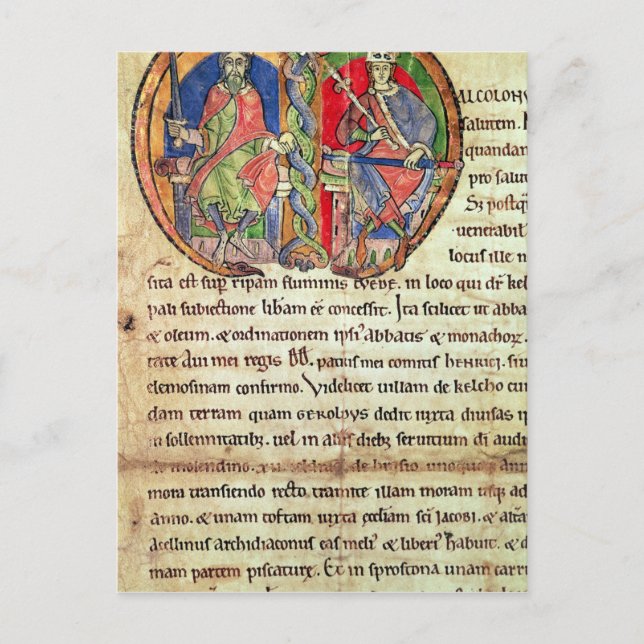 ALCOLONV
salutem. N
quandam
pro salut
Sꝫ postqͣ
uenerabit
locus ille n
sita est suꝑ ripam fluminis tvede. in loco qui dr̄ kel
pali subiectione libam ēē concessit. Ita scilicet ut abba
& oleum. & ordinationem ipsiꝰ abbatis & monachoꝝ
tate Aui mei regis DD. patrui mei comitis henrici. siu
elemosinam confirmo. Videlicet uillam de kelcho cum
dam terram quam geroldvs dedit iuxta diuisas
in sollennitatibꝫ. uel in aliis diebꝫ seruitium di audi
de molendino. unoquoqꝫ ann
mora transiendo recto tramite illam moram usqꝫ ad
anno. & unam toftam iuxta ecclīam sc̄i Jacobi. & altam
Acellinus archidiaconus eas meliꝰ & liberiꝰ habuit. & d
mam partem piscature. Et in sprostona unam carru